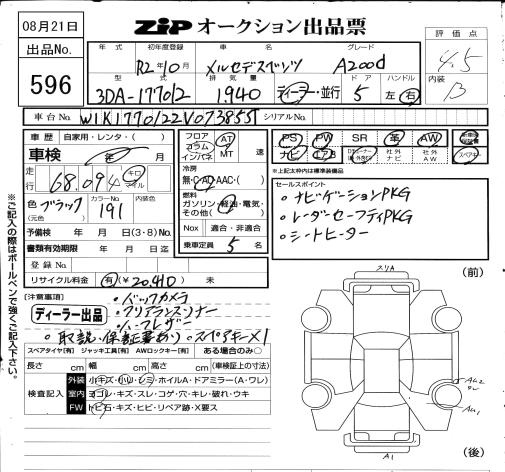 08月21日
ZIP オークション出品票
出品No.
596
年式 初年度登録 車名 グレード
R2年10月 メルセデスベンツ A200d
型式 排気量 ドア ハンドル
3DA-177012 1940 ディーラー・並行 5 左 右
評価点
4.5
内装
B
車台No. W1K1770122V073855 シリアルNo.
車歴 自家用・レンタ・( )
車検 年 月
走行 68,094 キロ マイル
色 ブラック カラーNo. 191 内装色
(元色)
予備検 年 月 日(3・8)No.
書類有効期限 年 月 日迄
登録No.
リサイクル料金 有(¥20,410) 未
フロア コラム インパネ AT MT 速
冷房
無・C・AC・AAC・( )
燃料
ガソリン・軽油・電気・その他( )
Nox 適合・非適合
乗車定員 5 名
PS PW SR 革 AW
ナビ エアB 社外ナビ 社外AW スペアキー
※上記太枠内は標準装備品
セールスポイント
・ナビゲーションPKG
・レーダーセーフティPKG
・シートヒーター
[注意事項]
・バックカメラ
・クリアランスソナー
・ハーフレザー
ディーラー出品
・取説・保証書あり ・スペアキー×1
スペアタイヤ[有] ジャッキ工具[有] AWロックキー[有] ある場合のみ○
長さ cm 幅 cm 高さ cm (車検証上の寸法)
検査記入
外装 小キズ・小凹・シミ・ホイルA・ドアミラー(A・ワレ)
室内 ヨゴレ・キズ・スレ・コゲ・穴・キレ・破れ・ウキ
FW トビ石・キズ・ヒビ・リペア跡・X要ス
※ご記入の際はボールペンで強くご記入下さい。
(前)
スリA
AU2
AU1
A1
(後)